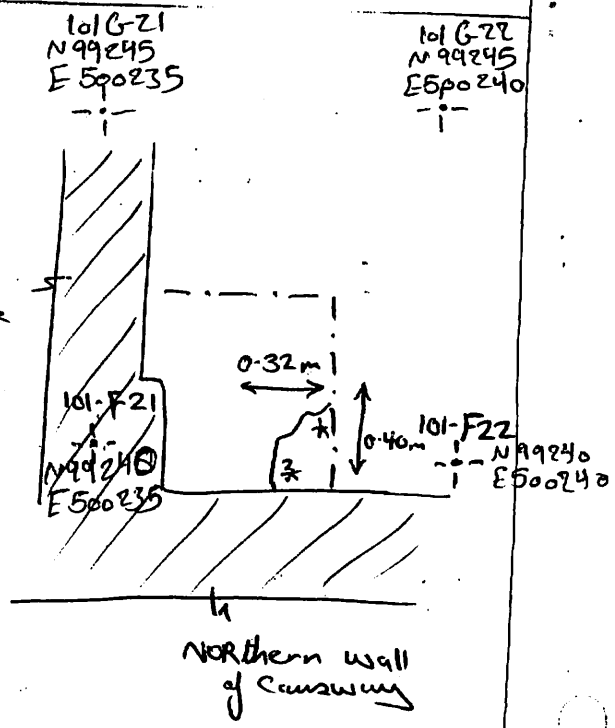 101 G-21
N 99245
E 500235
101 G-22
N 99245
E500240
0.32 m
101-F21
N99240
E500235
0.40m
101-F22
N 99240
E500240
Northern wall
of Causway